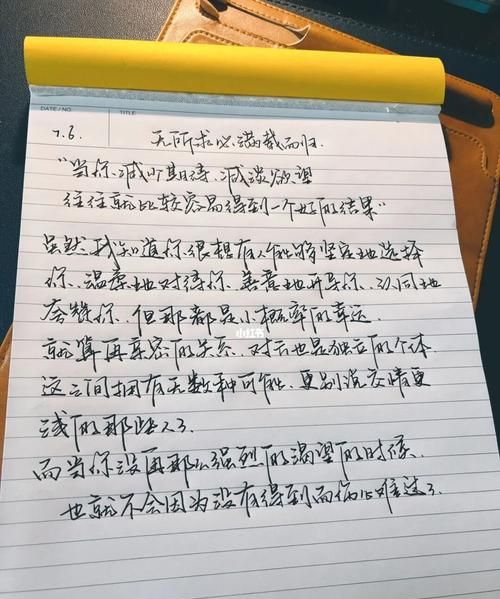 DATE / NO.
TITLE
7.6.
无所求必满载而归.
“当你减少期待、减淡欲望
往往就比较容易得到一个好的结果”
虽然我知道你很想有人能够坚定地选择
你、温柔地对待你、善意地开导你、认同地
夸赞你、但那都是小概率的幸运.
就算再亲密的关系、对方也是独立的个体
这之间拥有无数种可能、更别说交情更
浅的那些人了.
而当你没再那么强烈的渴望的时候.
也就不会因为没有得到而伤心难过了
小红书